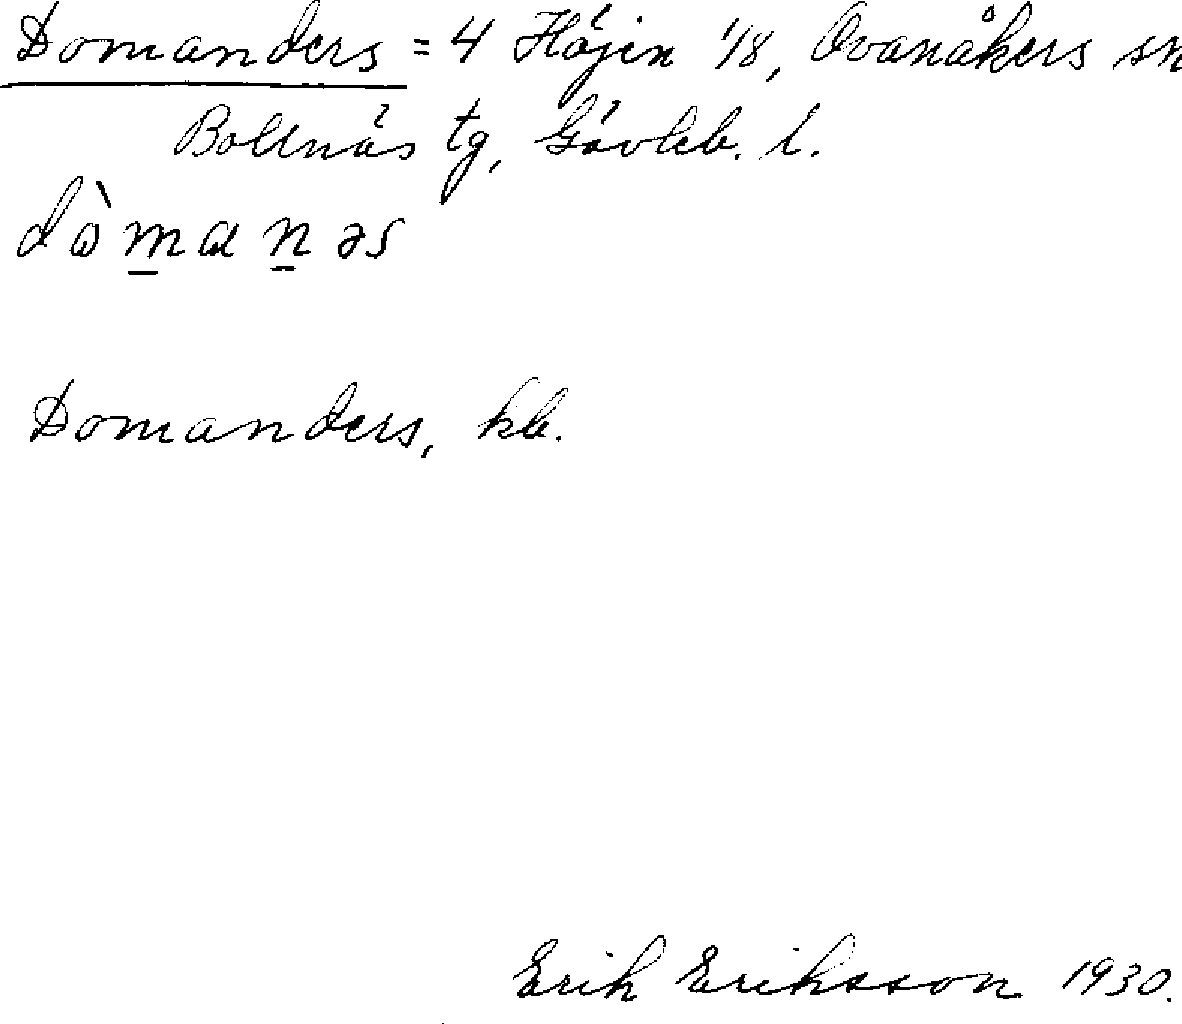 Domanders = 4 Höjen 1/8, Ovanåkers sn
Bollnäs tg, Gävleb. l.
dòmanəs
Domanders, kb.
Erik Eriksson 1930.